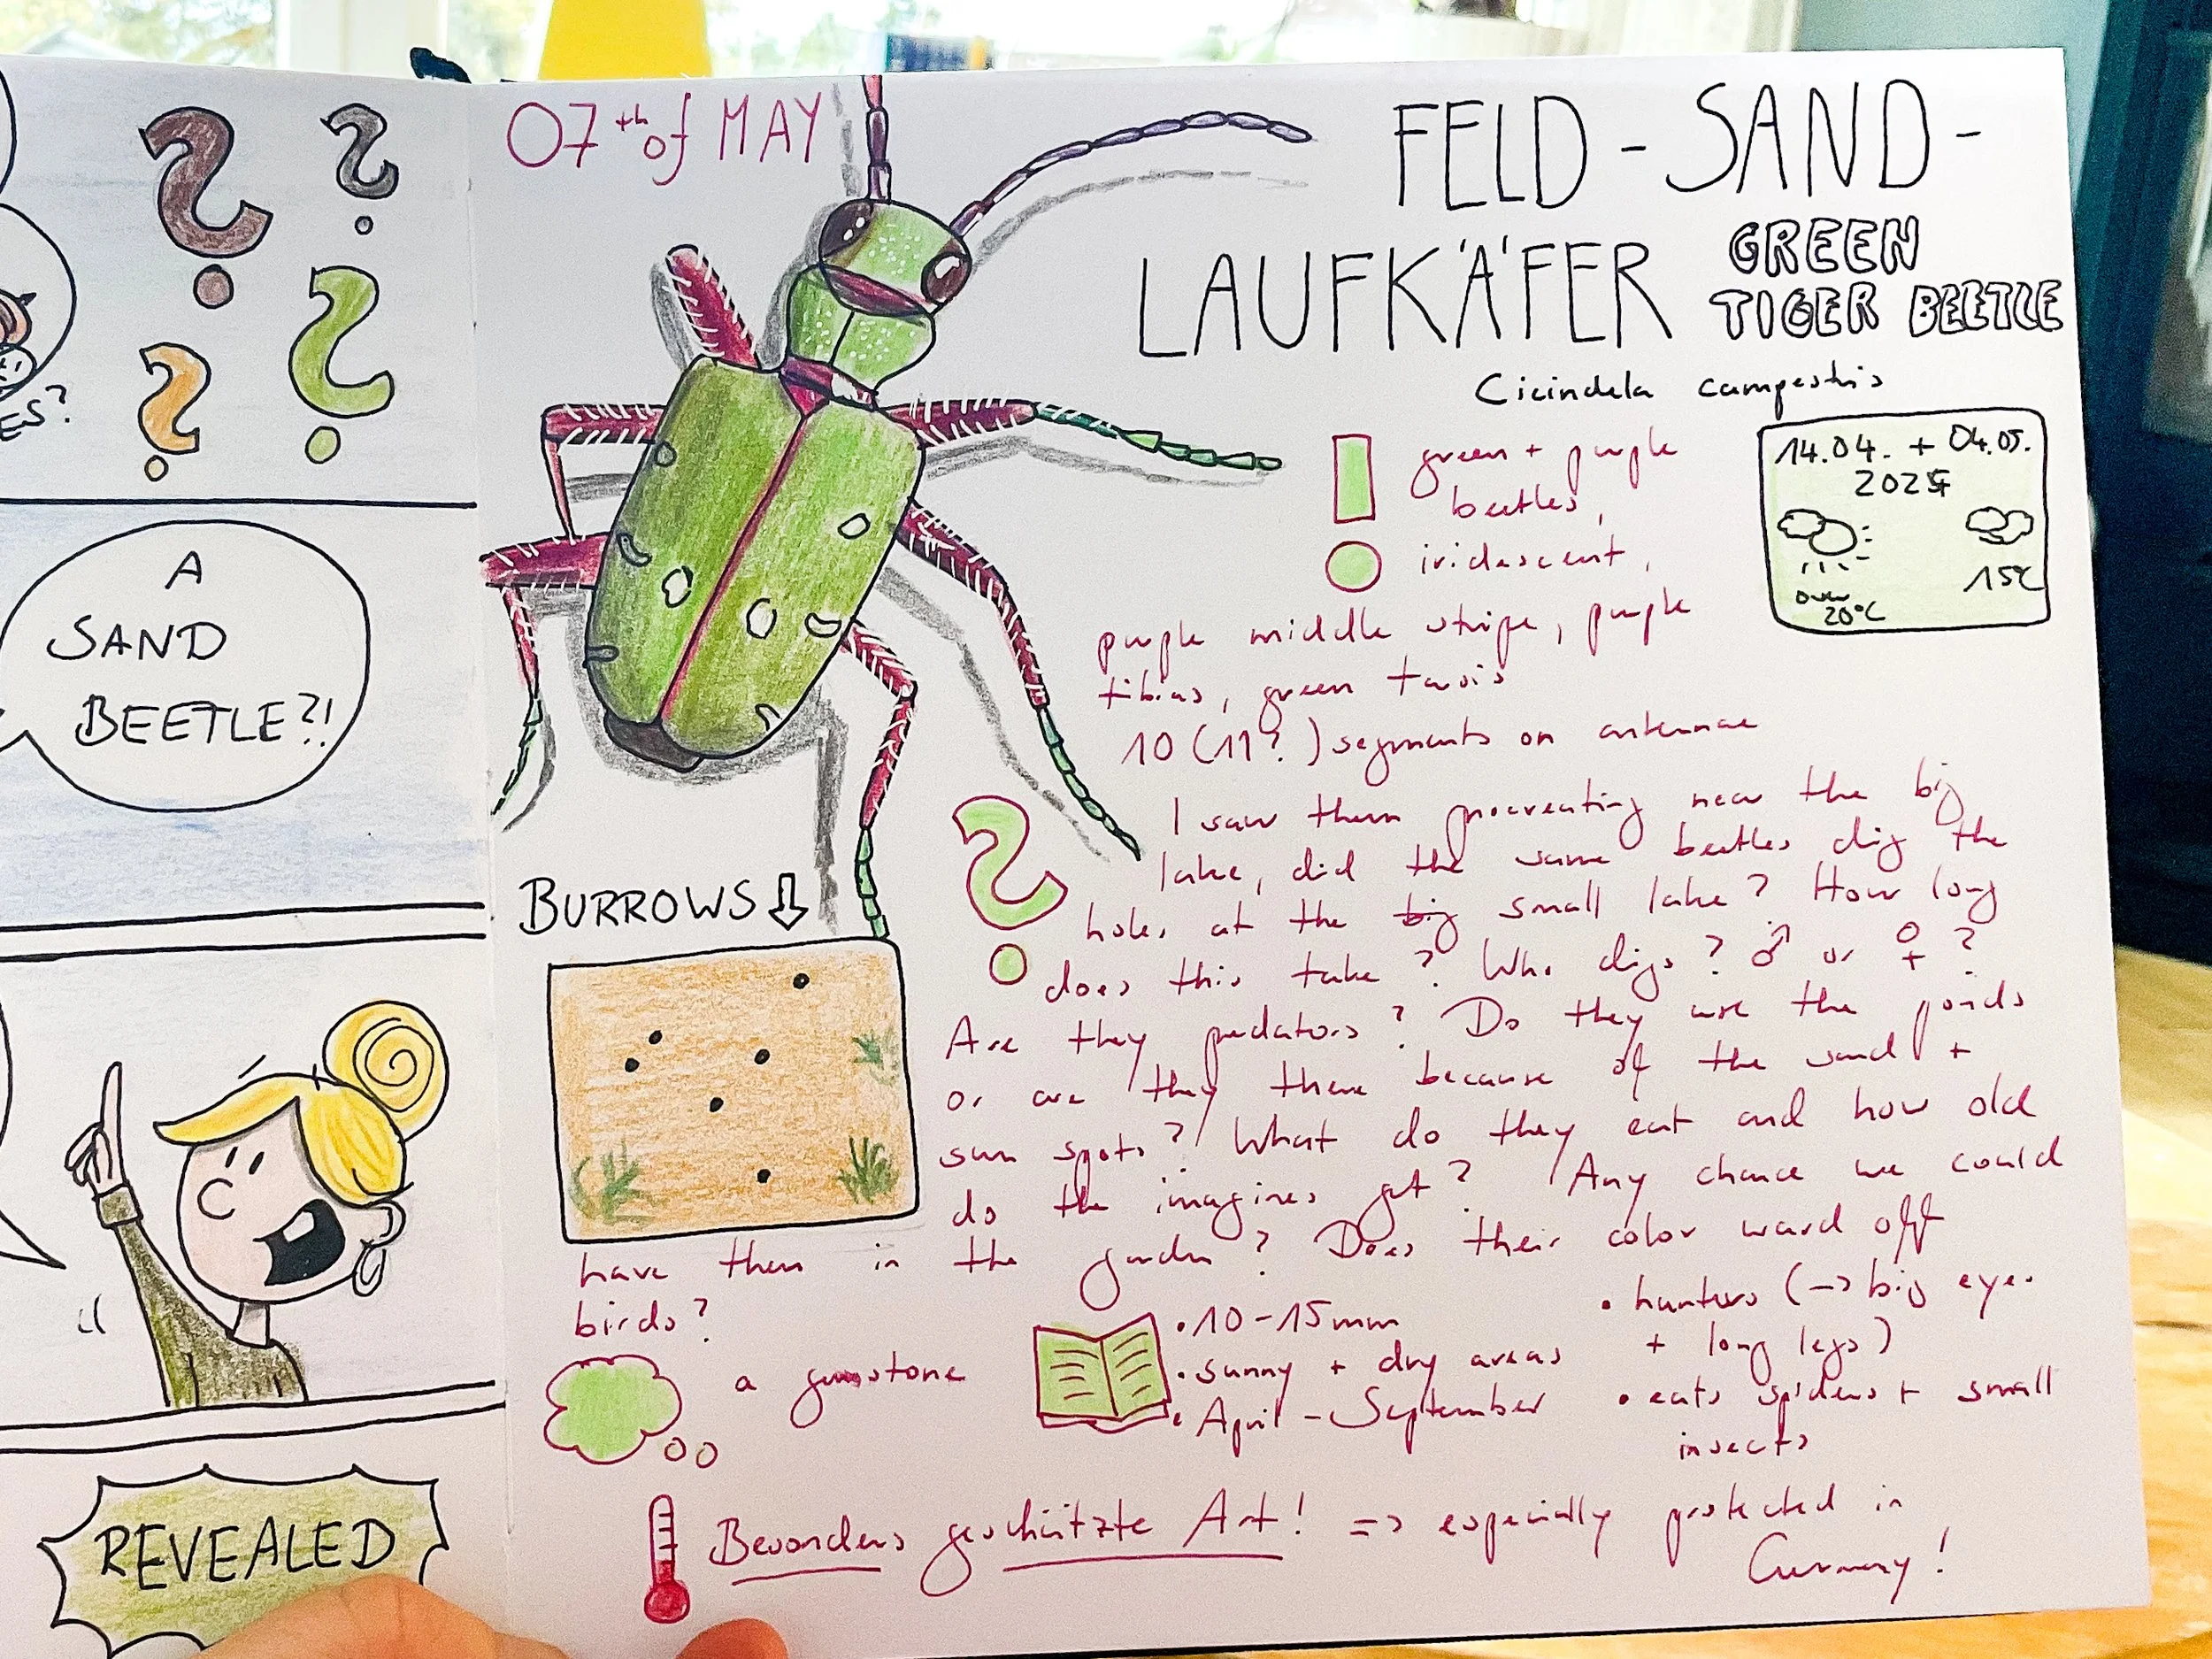 ES?
A
SAND
BEETLE?!
REVEALED
07th of MAY
FELD-SAND-
LAUFKÄFER
GREEN
TIGER BEETLE
Cicindela campestris
14.04. + 04.05.
2025
over
20°C
15°C
green + purple
beetles,
iridescent,
purple middle stripe, purple
tibias, green tarsis
10 (11?) segments on antennae
I saw them procreating near the big
lake, did the same beetles dig the
holes at the big small lake? How long
does this take? Who digs? ♂ or ♀?
Are they predators? Do they use the ponds
or are they there because of the sand +
sun spots? What do they eat and how old
do the imagines get? Any chance we could
have them in the garden? Does their color ward off
birds?
BURROWS ⇩
a gemstone
• 10-15mm
• sunny + dry areas
• April - September
• hunters (→ big eyes
+ long legs)
• eats spiders + small
insects
Besonders geschützte Art! => especially protected in
Germany!